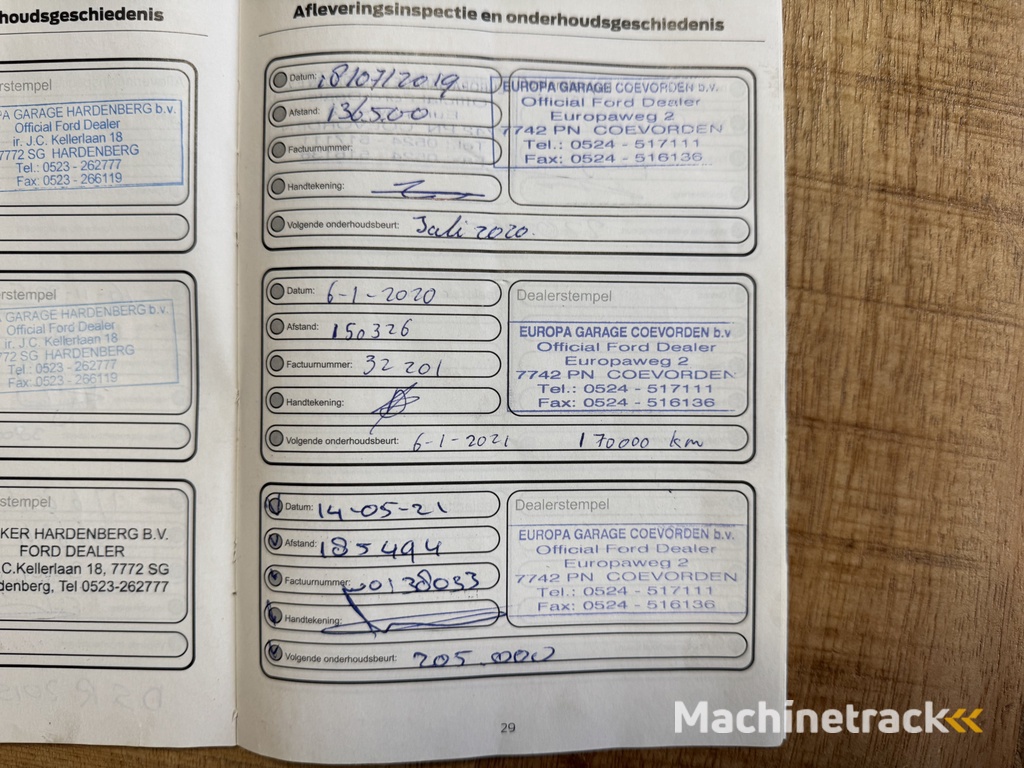 houdsgeschiedenis
erstempel
PA GARAGE HARDENBERG b.v.
Official Ford Dealer
ir. J.C. Kellerlaan 18
7772 SG HARDENBERG
Tel.: 0523 - 262777
Fax: 0523 - 266119
erstempel
GARAGE HARDENBERG b.v.
Official Ford Dealer
ir. J.C. Kellerlaan 18
772 SG HARDENBERG
Tel.: 0523 - 262777
Fax: 0523 - 266119
stempel
KER HARDENBERG B.V.
FORD DEALER
.C.Kellerlaan 18, 7772 SG
denberg, Tel 0523-262777
Afleveringsinspectie en onderhoudsgeschiedenis
Datum: 18/07/2019
Afstand: 136500
Factuurnummer:
Handtekening:
Volgende onderhoudsbeurt: Juli 2020.
EUROPA GARAGE COEVORDEN b.v.
Official Ford Dealer
Europaweg 2
7742 PN COEVORDEN
Tel.: 0524 - 517111
Fax: 0524 - 516136
Datum: 6-1-2020
Afstand: 150326
Factuurnummer: 32201
Handtekening:
Volgende onderhoudsbeurt: 6-1-2021 170000 km
Dealerstempel
EUROPA GARAGE COEVORDEN b.v
Official Ford Dealer
Europaweg 2
7742 PN COEVORDEN
Tel.: 0524 - 517111
Fax: 0524 - 516136
Datum: 14-05-21
Afstand: 185494
Factuurnummer: 00138033
Handtekening:
Volgende onderhoudsbeurt: 205.000
Dealerstempel
EUROPA GARAGE COEVORDEN b.v.
Official Ford Dealer
Europaweg 2
7742 PN COEVORDEN
Tel.: 0524 - 517111
Fax: 0524 - 516136
29
Machinetrack